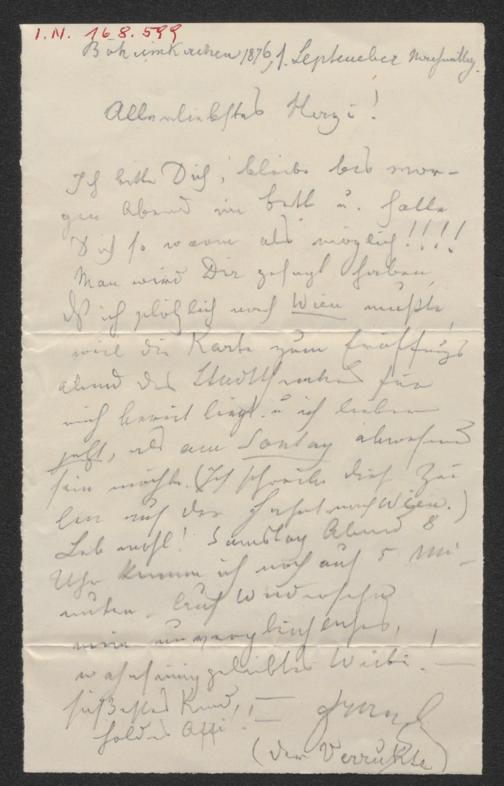 I.N. 16.8.599
Böheimkirchen 1876, 1. September Nachmittag.
Allerliebstes Herzi!
Ich bitte Dich, bleibe bis mor-
gen Abend im Bett u. halte
Dich so warm als möglich!!!!
Man wird Dir gesagt haben,
ich plötzlich nach Wien mußte,
weil die Karte zum Eröffnungs
abend des Stadttheaters für
mich bereit liegt u ich lieber
jetzt, als am Sontag abwesend
sein möchte. (Ich schreibe diese Zei
len auf der Fahrt nach Wien.)
Leb wohl! Samstag Abend 8
Uhr komm ich noch auf 5 Mi-
nuten. Auf Wiedersehn
mein unvergleichliches,
wahnsinnig geliebtes Weibi!
süßestes Kind,
holdes Affi!
(der Verrückte)